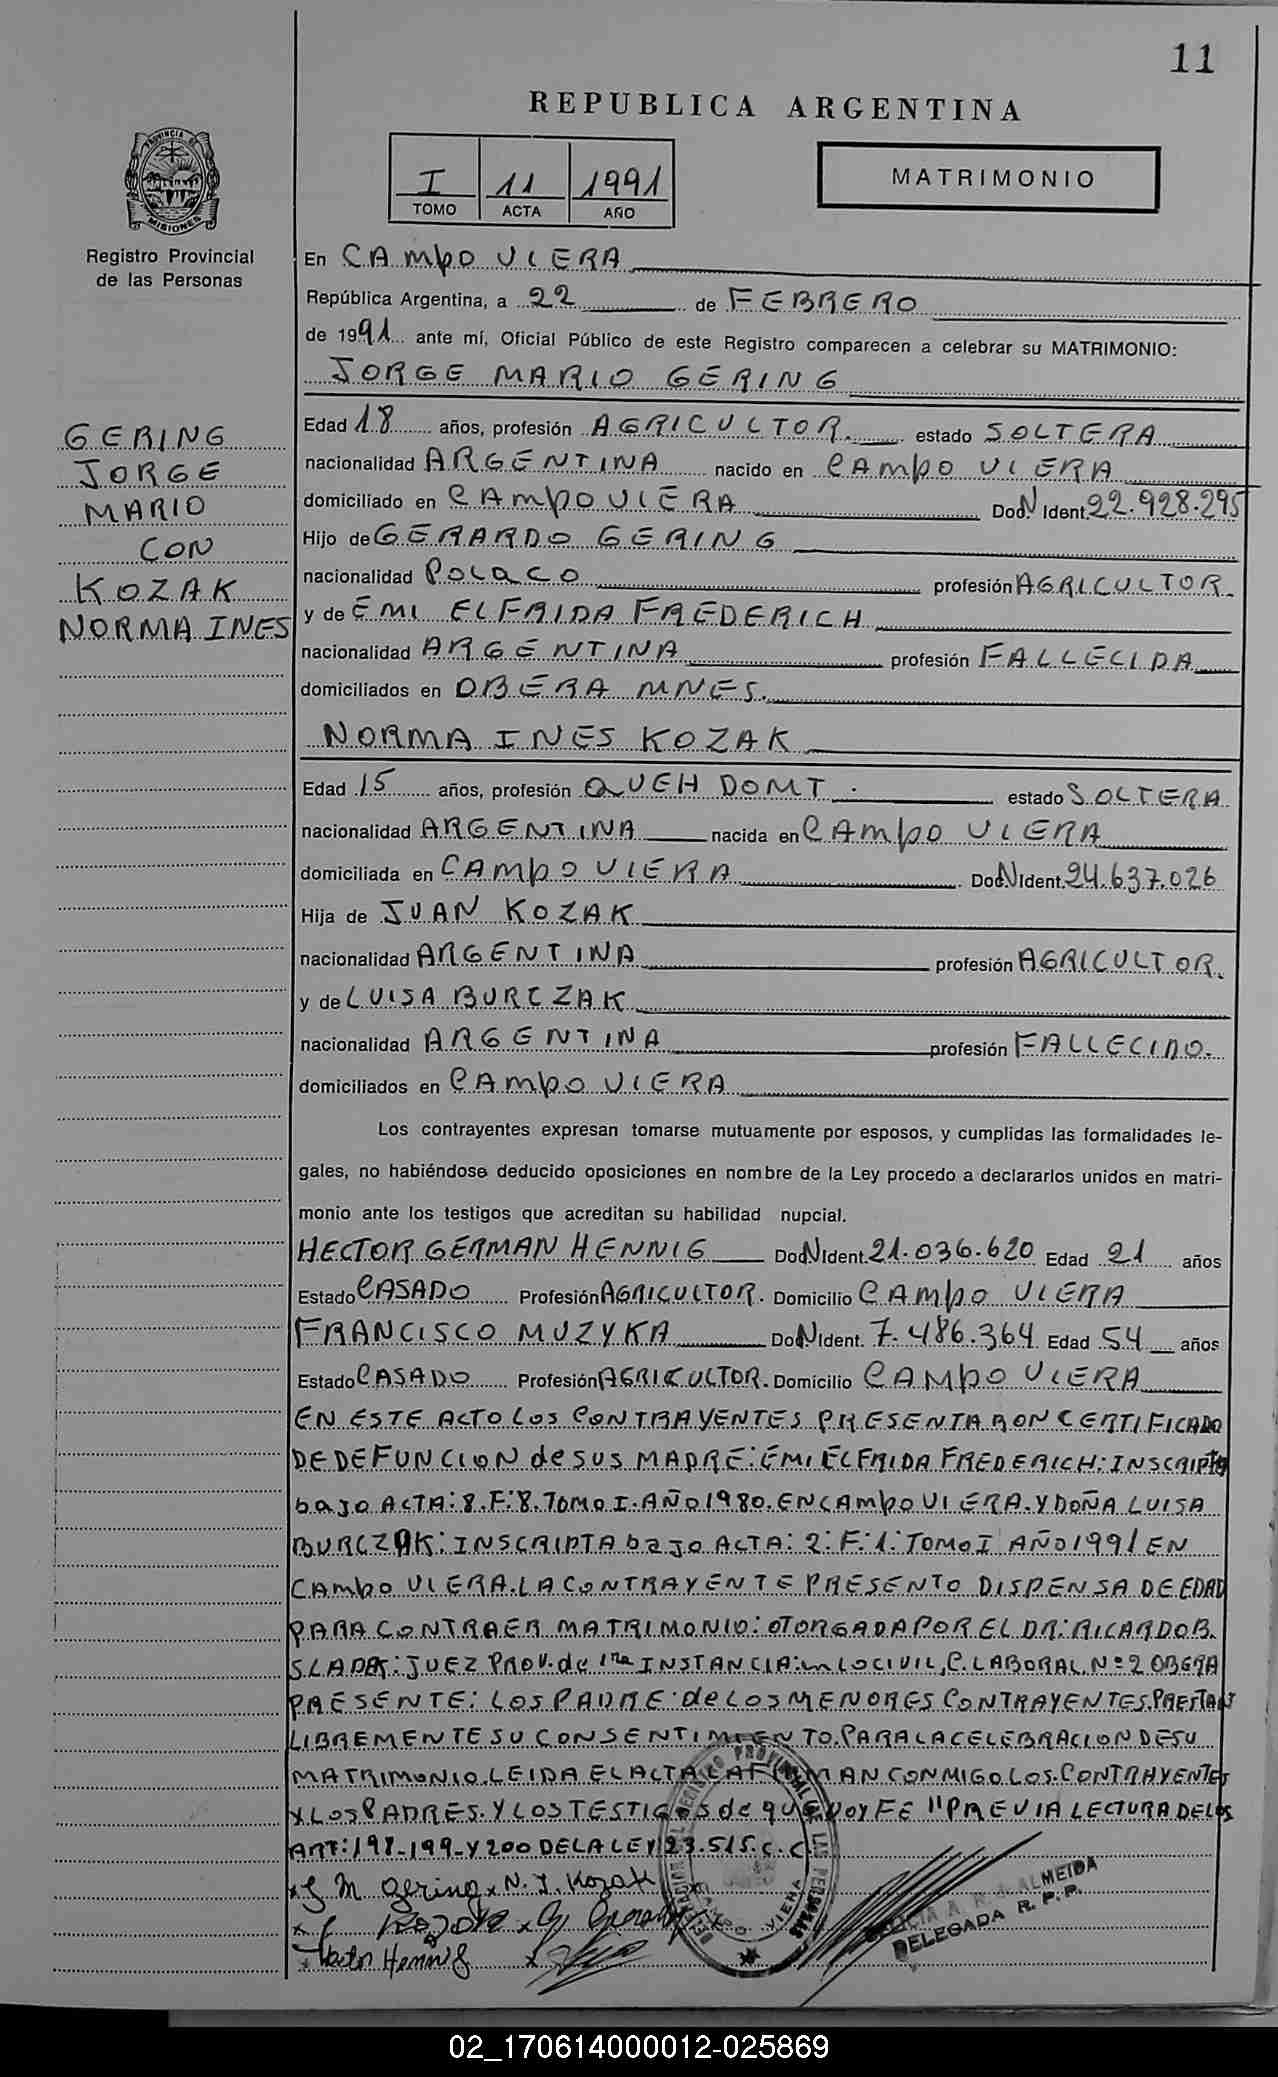 11
REPUBLICA ARGENTINA
I 11 1991
TOMO ACTA AÑO
MATRIMONIO
PROVINCIA DE
MISIONES
Registro Provincial
de las Personas
GERING
JORGE
MARIO
CON
KOZAK
NORMA INES
En CAMPO VIERA
República Argentina, a 22 de FEBRERO
de 1991 ante mí, Oficial Público de este Registro comparecen a celebrar su MATRIMONIO:
JORGE MARIO GERING
Edad 18 años, profesión AGRICULTOR. estado SOLTERA
nacionalidad ARGENTINA nacido en CAMPO VIERA
domiciliado en CAMPO VIERA Doc. N Ident. 22.928.295
Hijo de GERARDO GERING
nacionalidad POLACO profesión AGRICULTOR.
y de EMI ELFRIDA FREDERICH
nacionalidad ARGENTINA profesión FALLECIDA
domiciliados en OBERA MNES.
NORMA INES KOZAK
Edad 15 años, profesión QUEH DOMT. estado SOLTERA
nacionalidad ARGENTINA nacida en CAMPO VIERA
domiciliada en CAMPO VIERA Doc. N Ident. 24.637.026
Hija de JUAN KOZAK
nacionalidad ARGENTINA profesión AGRICULTOR.
y de LUISA BURCZAK
nacionalidad ARGENTINA profesión FALLECIDO.
domiciliados en CAMPO VIERA
Los contrayentes expresan tomarse mutuamente por esposos, y cumplidas las formalidades le-
gales, no habiéndose deducido oposiciones en nombre de la Ley procedo a declararlos unidos en matri-
monio ante los testigos que acreditan su habilidad nupcial.
HECTOR GERMAN HENNIG Doc. N Ident. 21.036.620 Edad 21 años
Estado CASADO Profesión AGRICULTOR. Domicilio CAMPO VIERA
FRANCISCO MUZYKA Doc. N Ident. 7.486.364 Edad 54 años
Estado CASADO Profesión AGRICULTOR. Domicilio CAMPO VIERA
EN ESTE ACTO LOS CONTRAYENTES PRESENTARON CERTIFICADO
DE DEFUNCION de SUS MADRE: EMI ELFRIDA FREDERICH: INSCRIPTA
bajo ACTA: 8. F: 8. TOMO I. AÑO 1980. EN CAMPO VIERA. Y DOÑA LUISA
BURCZAK: INSCRIPTA bajo ACTA: 2: F: 1: TOMO I AÑO 1991 EN
CAMPO VIERA. LA CONTRAYENTE PRESENTO DISPENSA DE EDAD
PARA CONTRAER MATRIMONIO: OTORGADA POR EL DR: RICARDO B.
SLADEK: JUEZ PROV. de 1ra INSTANCIA: en LO CIVIL, C. LABORAL. Nº 2 OBERA
PRESENTE: LOS PADRE: de LOS MENORES CONTRAYENTES. PRESTAN
LIBREMENTE SU CONSENTIMIENTO. PARA LA CELEBRACION DE SU
MATRIMONIO. LEIDA EL ACTA LA FIRMAN CONMIGO LOS. CONTRAYENTES
Y LOS PADRES. Y LOS TESTIGOS de que DOY FE "PREVIA LECTURA DE LOS
ART: 198-199-Y 200 DE LA LEY 23.515. C. C.
x J M Gering x N. I. Kozak
Hector Hennig
DELEGACION REGISTRO PROVINCIAL DE LAS PERSONAS
CAMPO VIERA
ALMEIDA
DELEGADA R. P. P.
02_170614000012-025869